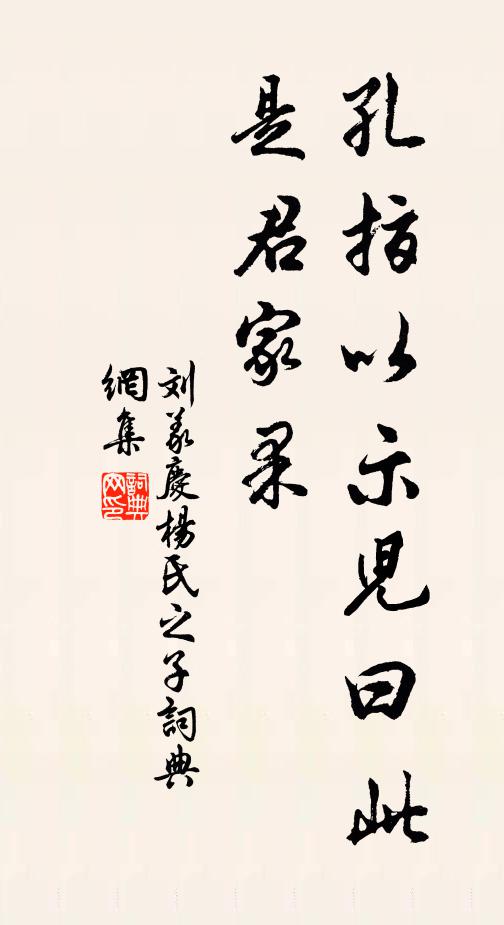 孔指以示児曰此
是君家果
刘義慶楊氏之子詞典
網集
詞典网印